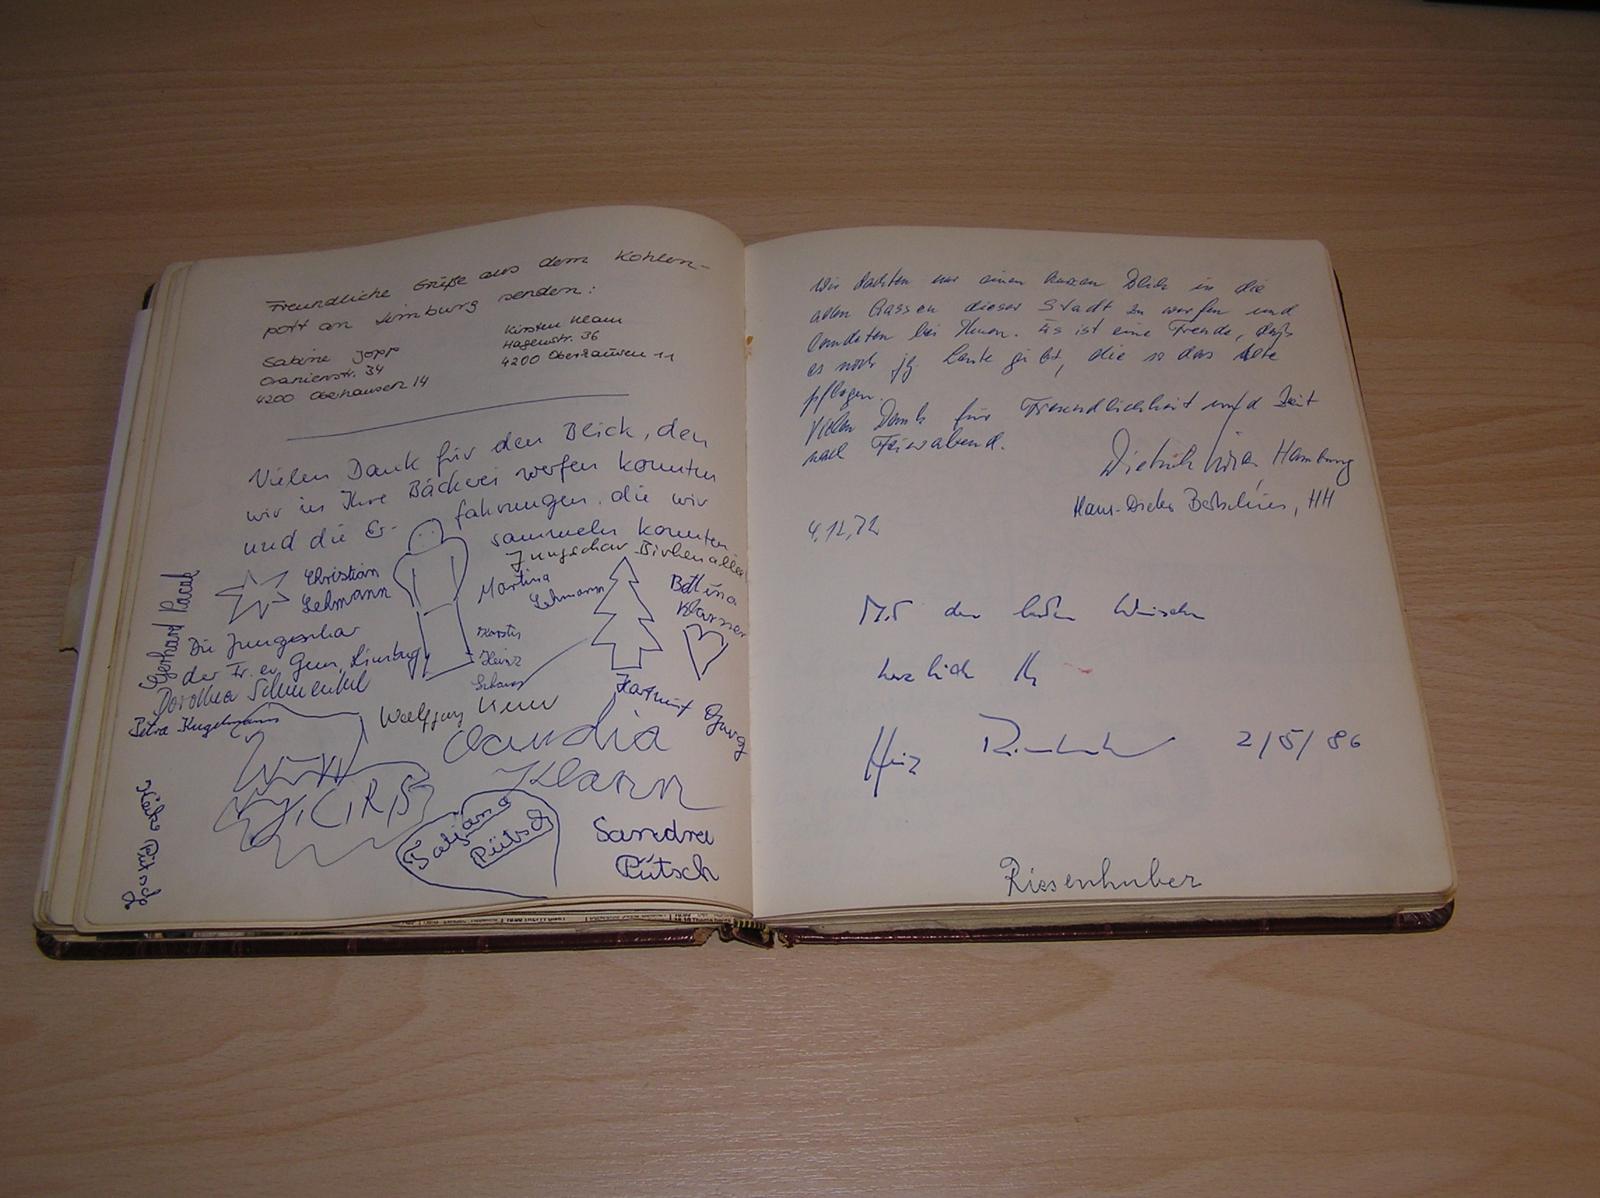 Freundliche Grüße aus dem Kohlen-
pott an Limburg senden:
Sabine Jopp
Oranienstr. 34
4200 Oberhausen 14
Kirsten Klann
Hagenstr. 36
4200 Oberhausen 11
Vielen Dank für den Blick, den
wir in Ihre Bäckerei werfen konnten
und die Er- fahrungen, die wir
sammeln konnten.
Jungschar Birkenallee
Christian
Lehmann
Martina
Lehmann
Bettina
Klarner
Gerhard
Die Jungschar
der Fr. ev. Gem. Limburg
Dorothea
Petra Kugelmann
Kerstin
Heinz
Wolfgang
Hartmut
Claudia
Klann
Tatjana
Pütsch
Sandra
Pütsch
Heiko Pütsch
Wir dachten nur einen kurzen Blick in die
alten Gassen dieser Stadt zu werfen und
landeten bei Ihnen. Es ist eine Freude, daß
es noch jg. Leute gibt, die so das Alte
pflegen.
Vielen Dank für Freundlichkeit und Zeit
nach Feierabend.
Dietrich Hamburg
Hans-Dieter HH
4.12.72
Mit den besten Wünschen
herzlich Ihr
Heinz Riesenhuber 2/5/86
Riesenhuber